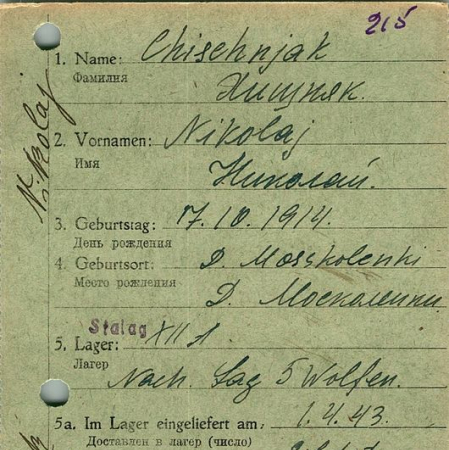 215
1. Name: Chischnjak
Фамилия Хищняк.
Nikolaj
2. Vornamen: Nikolaj
Имя Николай.
3. Geburtstag: 17.10.1914.
День рождения
4. Geburtsort: D. Moskolenki
Место рождения Д. Москаленки
Stalag
5. Lager: XII A
Лагерь
Nach. Lag 5 Wolfen.
5a. Im Lager eingeliefert am: 1.4.43.
Доставлен в лагерь (число)